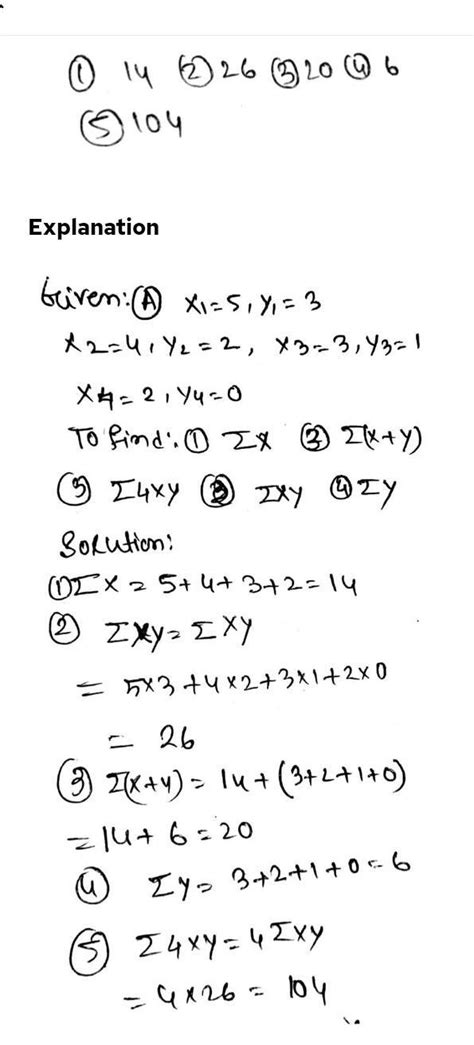 ① 14 ② 26 ③ 20 ④ 6
⑤ 104
Explanation
Given: Ⓐ x1=5, y1=3
x2=4, y2=2, x3=3, y3=1
x4=2, y4=0
To find: ① Σx ② Σ(x+y)
⑤ Σ4xy ③ Σxy ④ Σy
Solution:
① Σx = 5+4+3+2=14
② Σxy = Σxy
= 5×3+4×2+3×1+2×0
= 26
③ Σ(x+y) = 14+(3+2+1+0)
=14+6=20
④ Σy= 3+2+1+0=6
⑤ Σ4xy=4Σxy
=4×26= 104